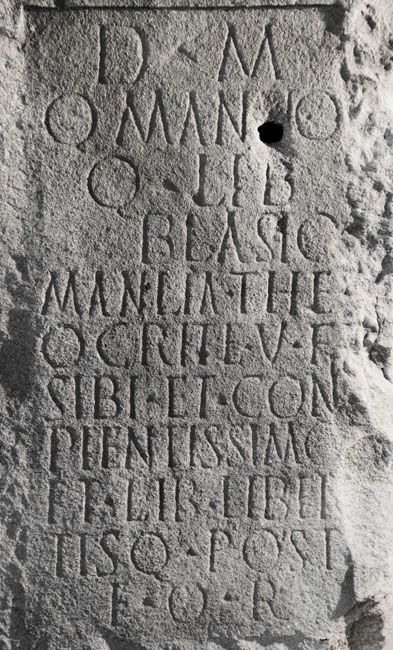 D · M
Q MANLIO
Q · LIB
BLASIO
MANLIA · THE
OCRITE · V · F
SIBI · ET · CON
PIENTISSIMO
ET · LIB · LIBER
TISQ · POST
E · O · R